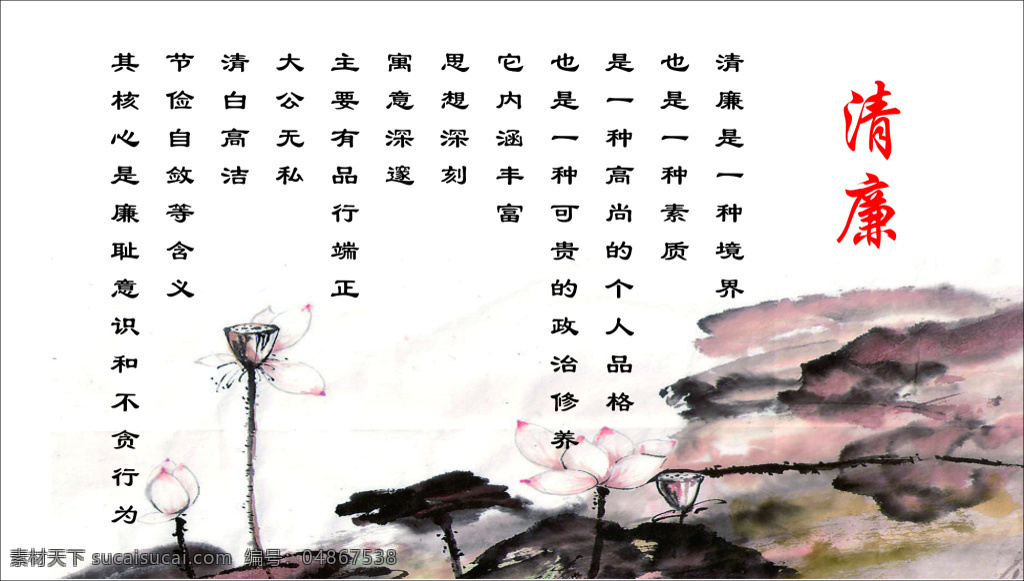 清廉
清廉是一种境界
也是一种素质
是一种高尚的个人品格
也是一种可贵的政治修养
它内涵丰富
思想深刻
寓意深邃
主要有品行端正
大公无私
清白高洁
节俭自敛等含义
其核心是廉耻意识和不贪行为
素材天下 sucaisucai.com 编号：04867538